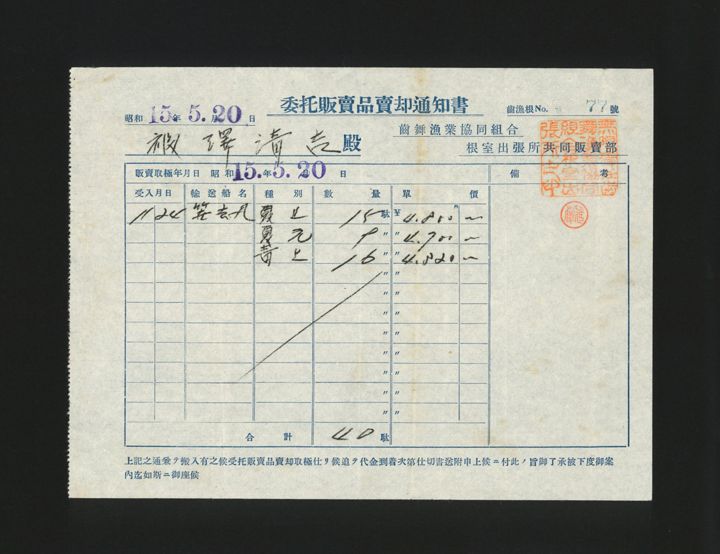 委托販賣品賣却通知書
昭和 15年 5月 20日
齒漁根No. 77號
澤清吉殿
齒舞漁業協同組合
根室出張所共同販賣部
販賣取極年月日 昭和 15年 5月 20日 備考
受入月日 輸送船名 種別 數量 單價
11 24 上 15 駄 ¥ 4.800
元 9 〃 〃 4.700
上 16 〃 〃 4.820
〃 〃
〃 〃
〃 〃
〃 〃
〃 〃
〃 〃
合計 40 駄
上記之通乘ヲ搬入有之候受托販賣品賣却取極仕リ候追ヲ代金到着次第仕切書送附申上候ニ付此ノ旨御了承被下度御案
內迄如斯ニ御座候